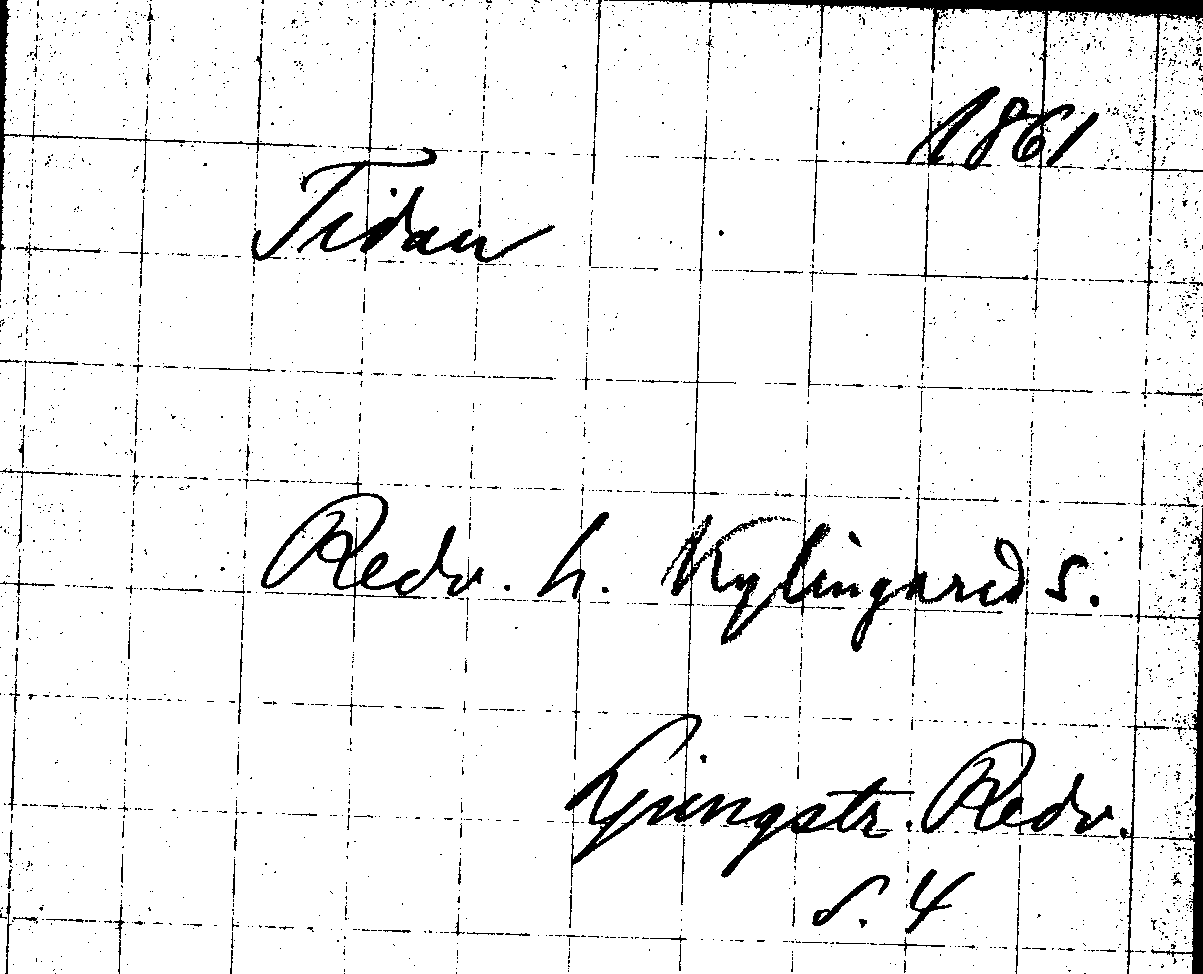 1861
Tidan
Redv. h. Kylingared s.
Ljungstr. Redv.
s. 4